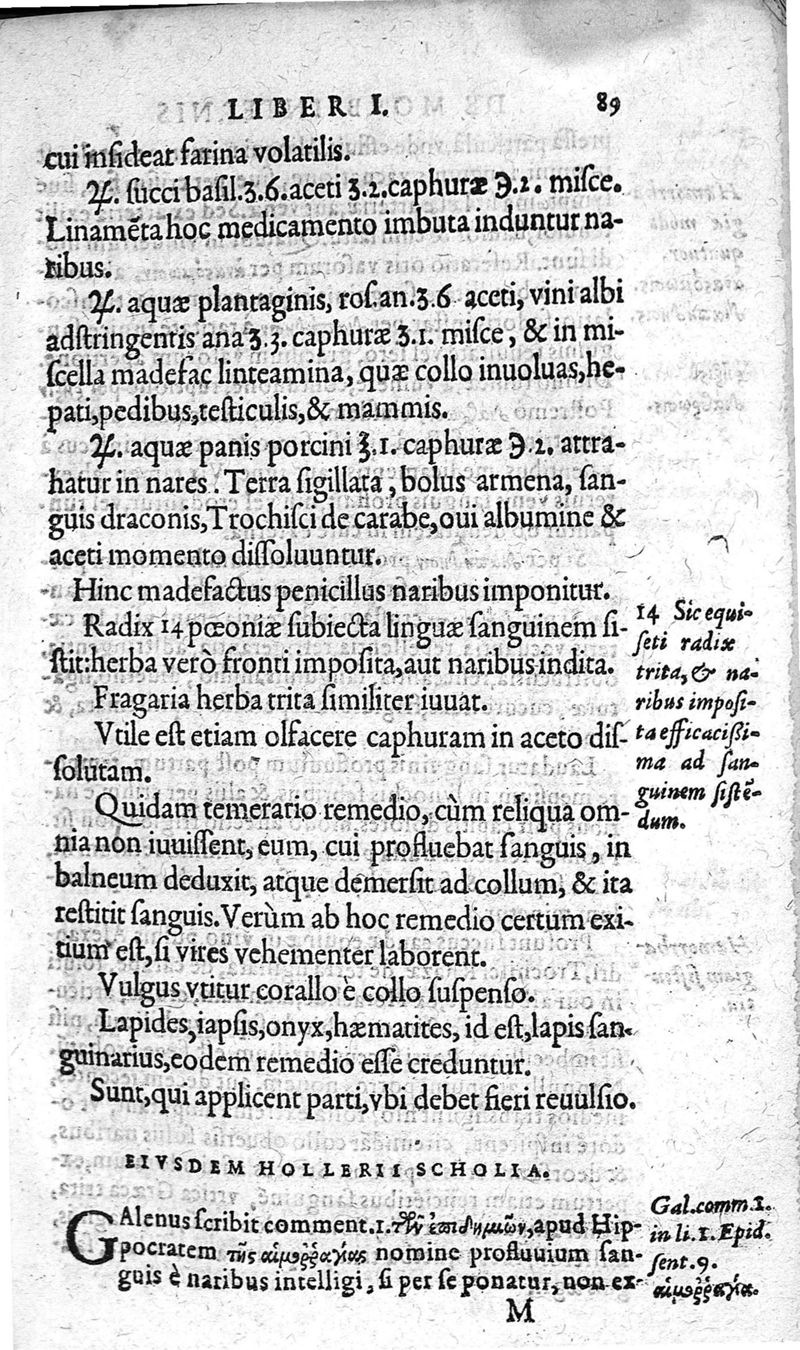 LIBER I. 89
cui insideat farina volatilis.
♃. succi basil.ʒ.6.aceti ʒ.2.caphuræ ℈.2. misce.
Linamẽta hoc medicamento imbuta induntur na-
ribus.
♃. aquæ plantaginis, ros.an.ʒ.6 aceti, vini albi
adstringentis ana ʒ.3. caphuræ ʒ.1. misce, & in mi-
scella madefac linteamina, quæ collo inuoluas, he-
pati, pedibus, testiculis, & mammis.
♃. aquæ panis porcini ℥.1. caphuræ ℈.2. attra-
hatur in nares. Terra sigillata, bolus armena, san-
guis draconis, Trochisci de carabe, oui albumine &
aceti momento dissoluuntur.
Hinc madefactus penicillus naribus imponitur.
Radix 14 pœoniæ subiecta linguæ sanguinem si-
stit: herba verò fronti imposita, aut naribus indita.
Fragaria herba trita similiter iuuat.
Vtile est etiam olfacere caphuram in aceto dis-
solutam.
Quidam temerario remedio, cùm reliqua om-
nia non iuuissent, eum, cui profluebat sanguis, in
balneum deduxit, atque demersit ad collum, & ita
restitit sanguis. Verùm ab hoc remedio certum exi-
tium est, si vires vehementer laborent.
Vulgus vtitur corallo è collo suspenso.
Lapides, iapsis, onyx, hæmatites, id est, lapis san-
guinarius, eodem remedio esse creduntur.
Sunt, qui applicent parti, vbi debet fieri reuulsio.
14 Sic equi-
seti radix
trita, & na-
ribus imposi-
ta efficacissi-
ma ad san-
guinem sistẽ-
dum.
EIVSDEM HOLLERII SCHOLIA.
GAlenus scribit comment.1. τῶν ἐπιδημιῶν, apud Hip-
pocratem τῆς αἱμοῤῥαγίας nomine profluuium san-
guis è naribus intelligi, si per se ponatur, non ex-
Gal.comm.1.
in li.1.Epid.
sent.9.
αἱμοῤῥαγία.
M